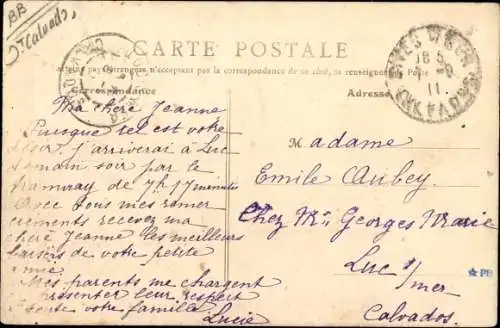 BB
Calvados
CARTE POSTALE
n'acceptant pas la correspondance de ce côté, se renseigner à la Poste
Correspondance
Adresse
Ma chère Jeanne
Puisque tel est votre
désir j'arriverai à Luc
demain soir par le
tramway de 7h 17 minutes
Avec tous mes remer
ciements recevez ma
chère Jeanne les meilleurs
baisers de votre petite
amie
Mes parents me chargent
présenter leur respect
toute votre famille
Lucie
Madame
Emile Aubey
Chez Mr Georges Marie
Luc s/
mer
Calvados